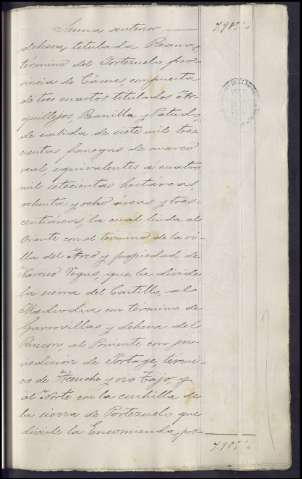 Suma anterior 7.985
dehesa titulada
término del Portezuelo pro
vincia de Cáceres compuesta
de tres cuartos titulados
y
de cabida de siete mil tres
cientas fanegas de marco
real equivalentes a cuatro
mil setecientas hectareas
ochenta y ocho áreas y tres
centiareas, la cual linda al
Oriente con el término de la vi
lla del Arco y propiedad de
que la divide
la sierra del Castillo, al
Mediodia con término de
Garrovillas y dehesa del
Rincon al Poniente con
de Portaje,
y rio Tajo y
al Norte con la cuchilla de
la sierra de Portezuelo que
divide la Encomienda,
7.985